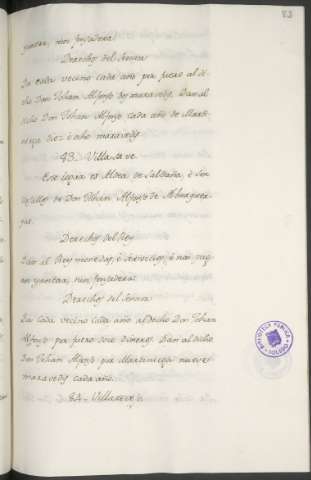 yantar, nin fonsadera.
Derechos del Señor
Da cada vecino cada año por pecho al di-
cho Don Johan Alfonso dos maravedis. Dan al
dicho Don Johan Alfonso cada año de Marti-
niega diez é ocho maravedis.
83. Villasave
Este logar es Aldea de Saldaña, é son
de Don Johan Alfonso de Alburquer-
que.
Derechos del Rey
Dan al Rey monedas, é servicios, é non pa-
gan yantar, nin fonsadera.
Derechos del Señor
Da cada vecino cada año al dicho Don Johan
Alfonso por pecho doce dineros. Dan al dicho
Don Johan Alfonso por Martiniega nueve
maravedis cada año.
84. 
BIBLIOTECA PUBLICA
TOLEDO